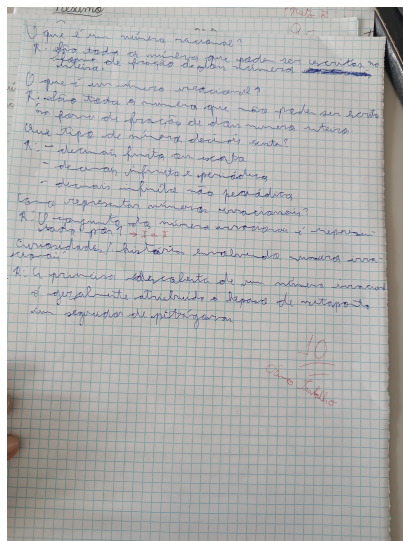 Resumo
O que é um número racional?
R: São todos os números que podem ser escritos na
forma de fração de dois números
inteiros.
O que é um número irracional?
R: São todos os números que não podem ser escritos
na forma de fração de dois números inteiros
Que tipo de números decimais existe?
R: - decimais finitos ou exatos
- decimais infinitos e periódicos
- decimais infinitos não periódicos
Como representar números irracionais?
R: O conjunto dos números irracionais é represen
tado por I
Curiosidade / história envolvendo números irra-
cionais
R: A primeira descoberta de um número irracional
é geralmente atribuída a Hipaso de metaponto
um seguidor de pitágoras
10
Ótimo trabalho